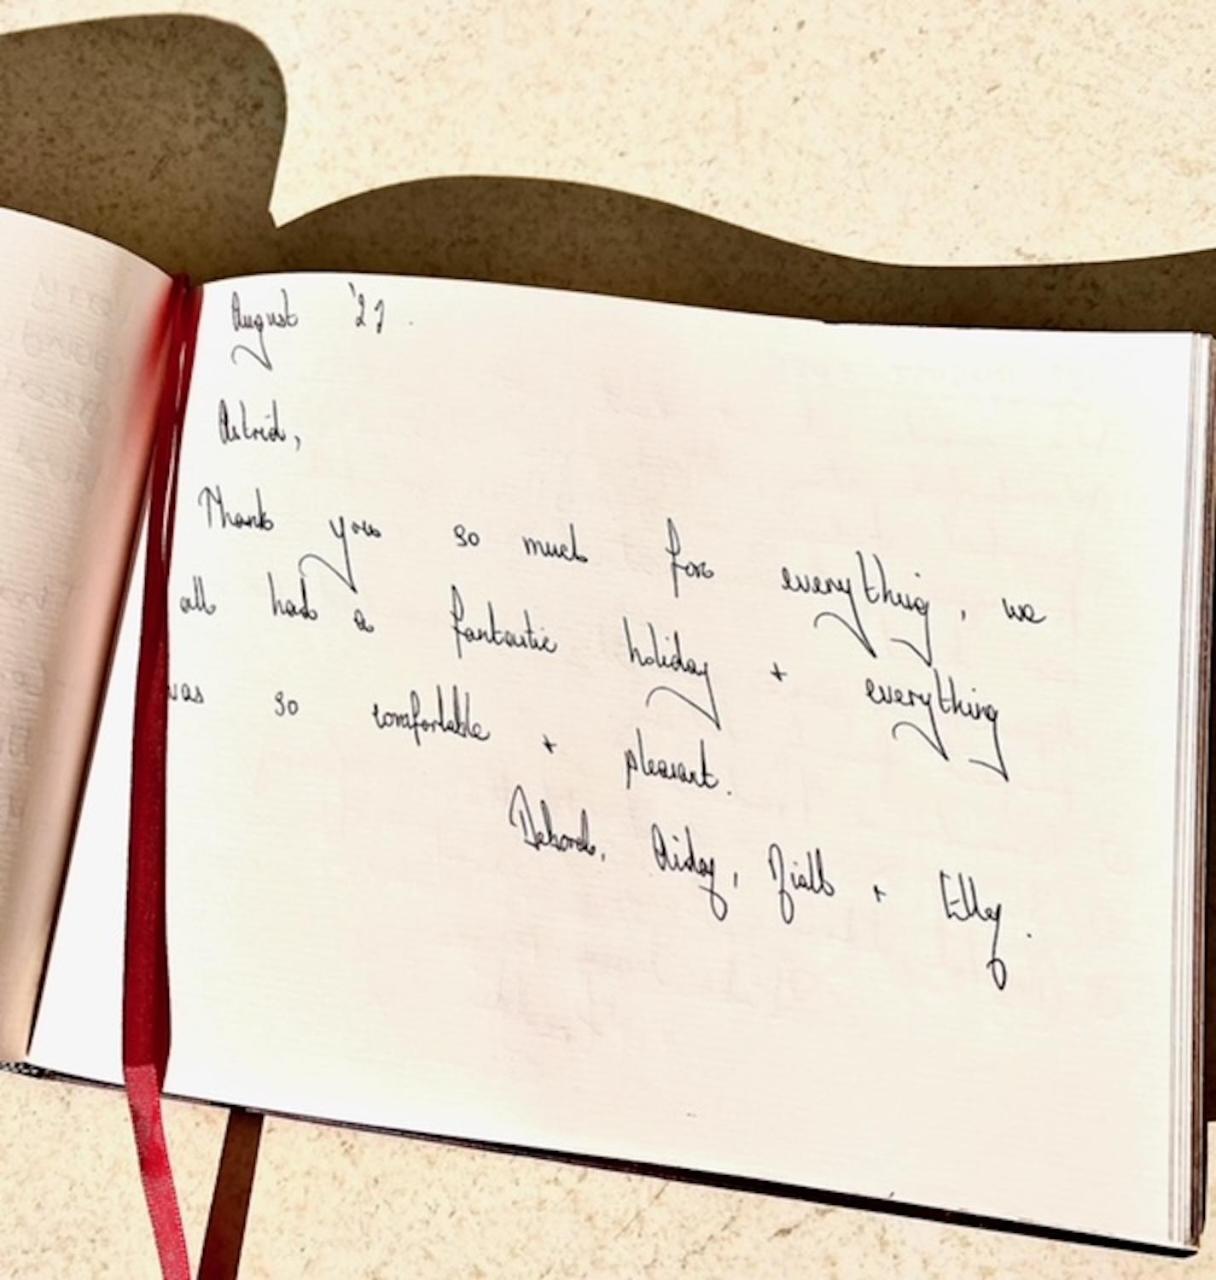 August '21.
Astrid,
Thank you so much for everything, we
all had a fantastic holiday + everything
was so comfortable + pleasant.
Deborah, Niall + Elly.